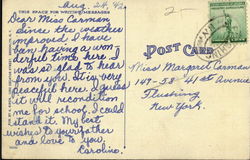 Aug. 24, '42
THIS SPACE FOR WRITING MESSAGES
Dear Miss Carman,
Since the weather
improved I have
been having a won-
derful time here. I
was so glad to hear
from you. It is very
peaceful here. I guess
it will recondition
me for school. I could
stand it. My best
wishes to your father
and love to you.
Caroline.
POST CARD
Miss Margaret Carman
147-53 - 41st Avenue
Flushing
New York.